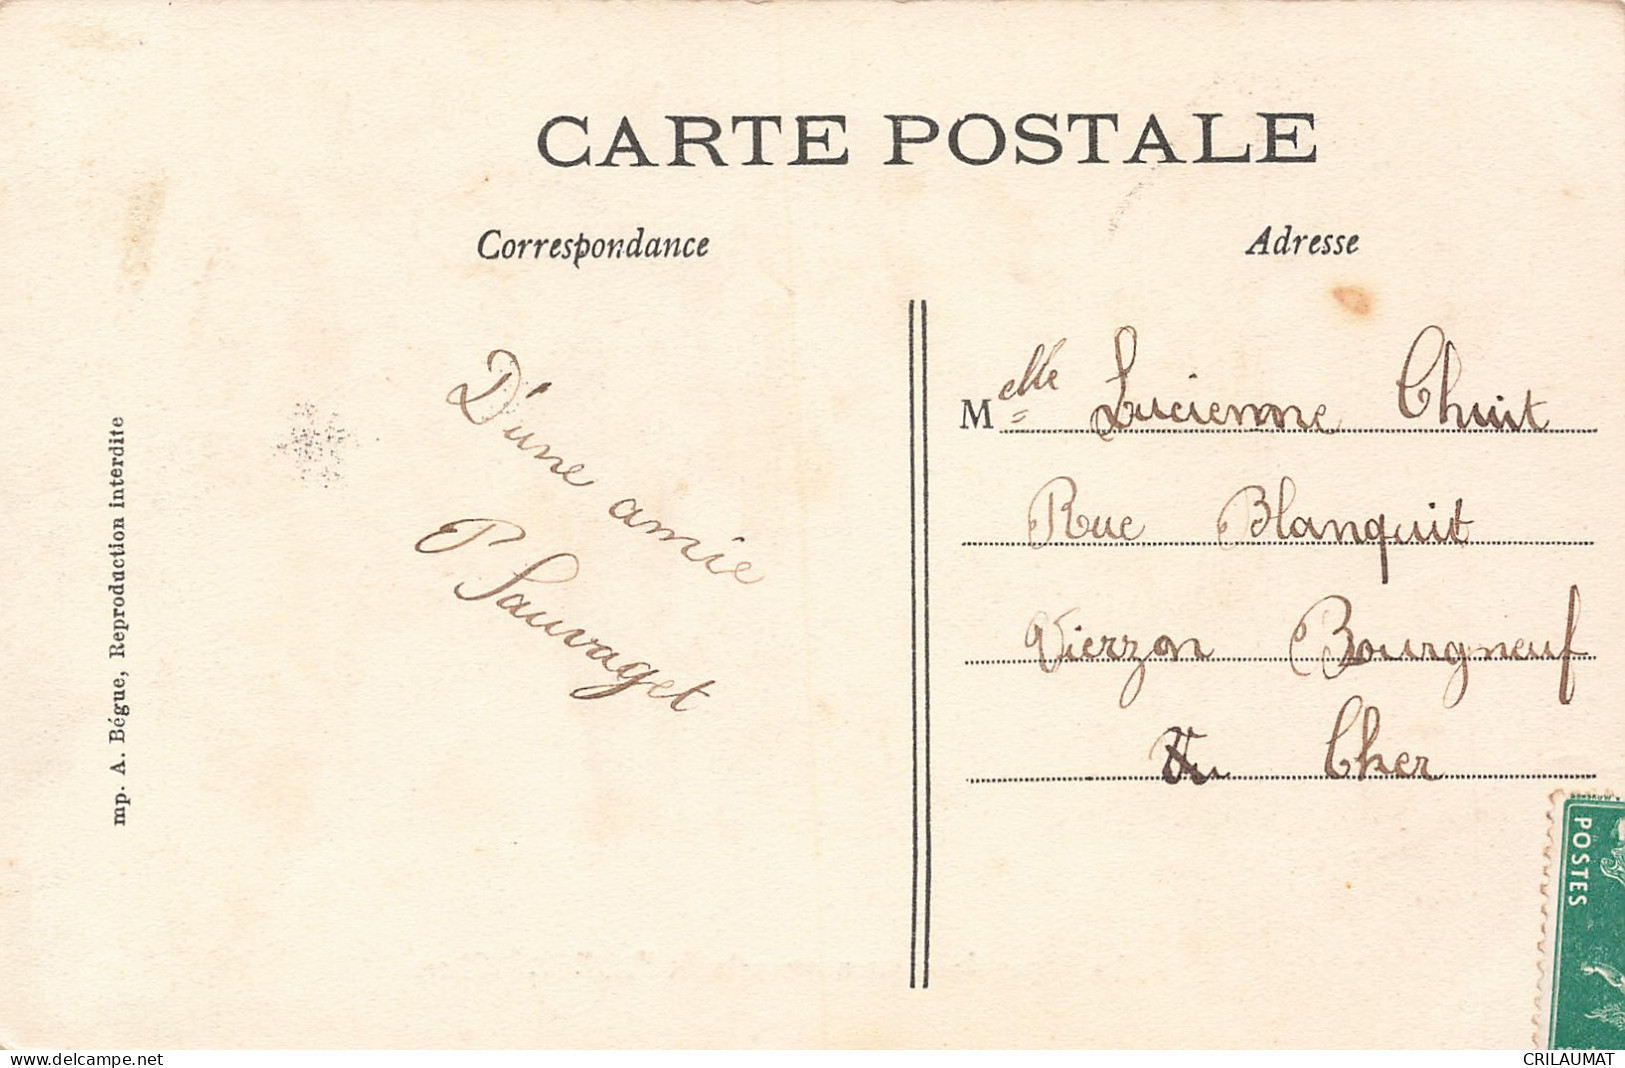 CARTE POSTALE
Correspondance
Adresse
D'une amie
P Sauvaget
Melle Lucienne Chuit
Rue Blanquit
Vierzon Bourgneuf
Cher
mp. A. Bégue, Reproduction interdite
POSTES
www.delcampe.net
CRILAUMAT